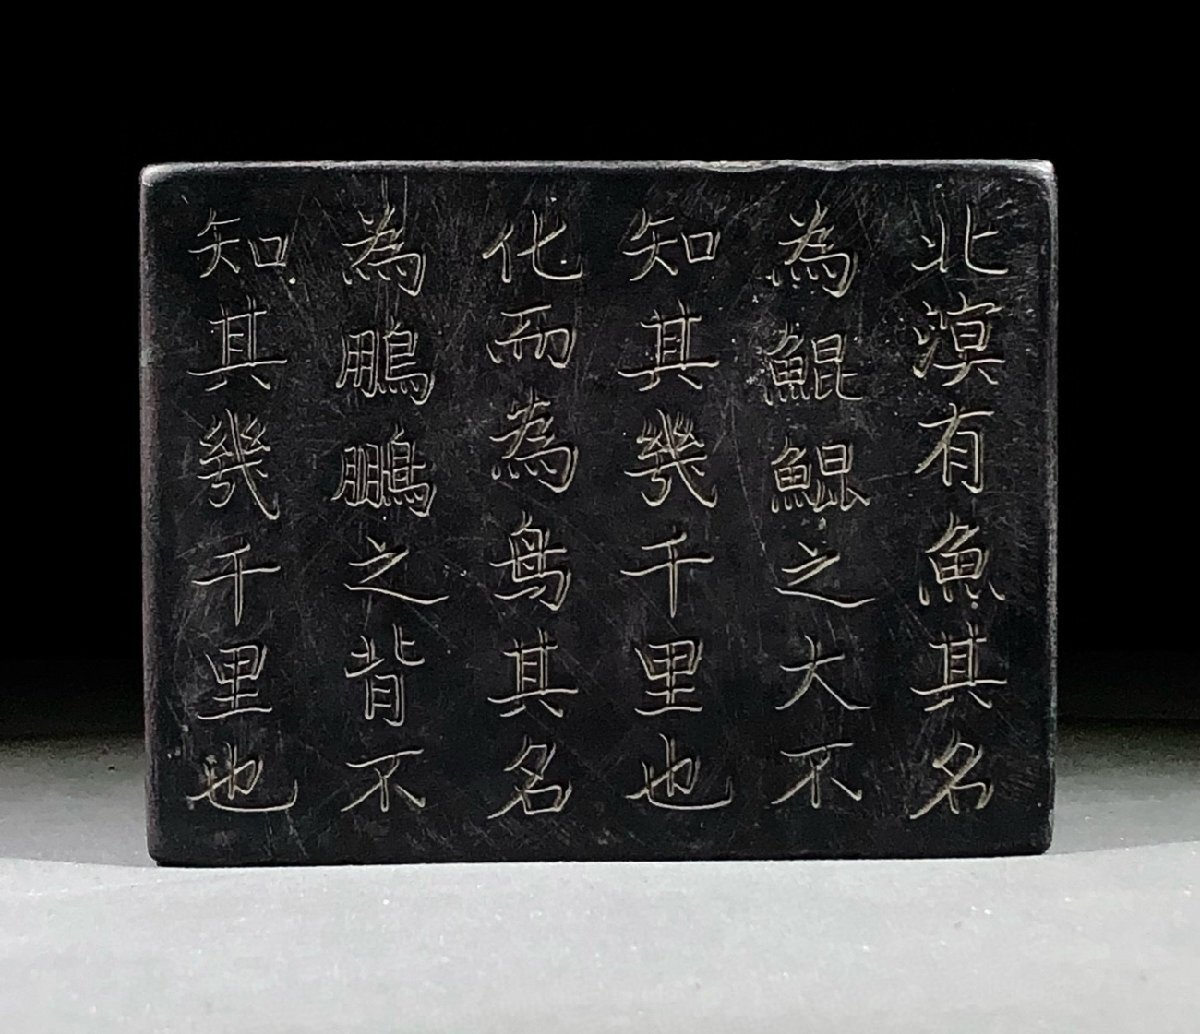 北溟有魚其名
為鯤鯤之大不
知其幾千里也
化而為鳥其名
為鵬鵬之背不
知其幾千里也